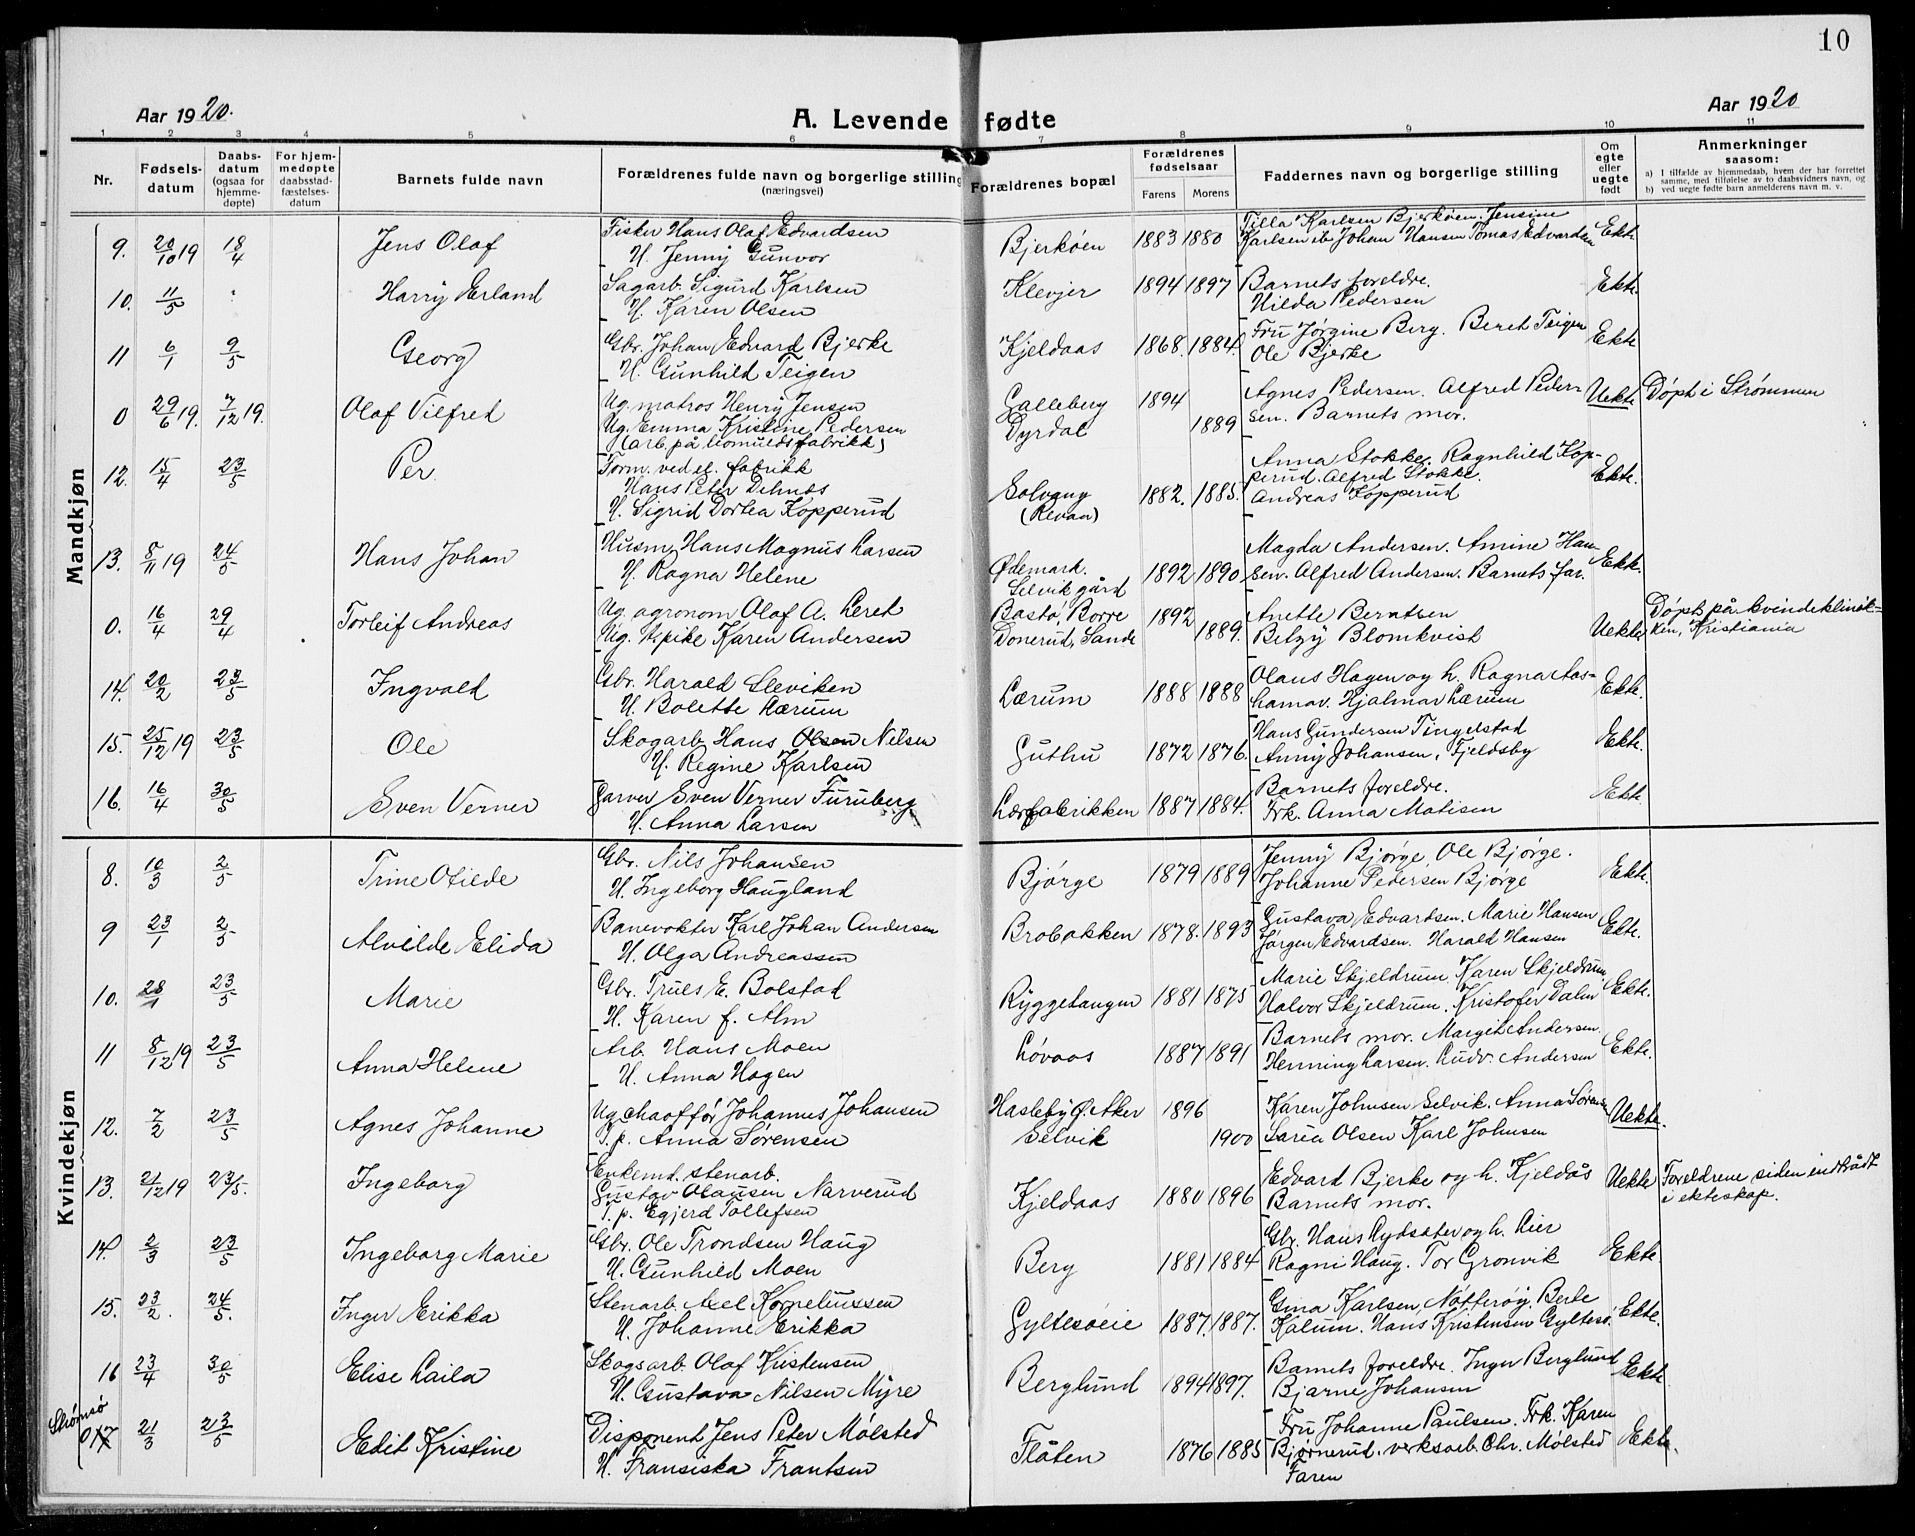 10
Aar 1920.
A. Levende fødte
Aar 1920
1 2 3 4 5 6 7 8 9 10 11
Nr.
Fødsels-datum
Daabs-datum (ogsaa for hjemme-døpte)
For hjem-medøpte daabsstad-fæstelses-datum
Barnets fulde navn
Forældrenes fulde navn og borgerlige stilling (næringsvei)
Forældrenes bopæl
Forældrenes fødselsaar
Farens Morens
Faddernes navn og borgerlige stilling
Om egte eller uegte født
Anmerkninger saasom:
a) I tilfælde av hjemmedaab, hvem der har forrettet samme, med tilføielse av to daabsvidners navn, og
b) ved uegte fødte barn anmelderens navn m. v.
Mandkjøn
9. 20/10 19 18/4 Jens Olaf
Fisker Hans Olaf Edvardsen
H. Jenny Gunvor
Bjerkøen 1883 1880
Tilla Karlsen Bjerkøen. Jensine
Karlsen ib Johan Hansen Tomas Edvardsen Ekte
10. 11/5 Harry Erland
Sagarb. Sigurd Karlsen
H. Karen Olsen
Klevjer 1894 1897
Barnets foreldre.
Hilda Pedersen
Ekte.
11 6/1 9/5 Georg
Gbr. Johan Edvard Bjerke
H. Gunhild Teigen
Kjeldaas 1868. 1884.
Fru Jørgine Berg. Beret Teigen
Ole Bjerke
Ekte
0 29/6 19. 7/12 19. Olaf Vilfred
Ug. matros Henry Jensen
Ug. Emma Kristine Pedersen
(arb. på bomuldsfabrikk)
Galleberg 1894
Dyrdal 1889
Agnes Pedersen. Alfred Peder-
sen. Barnets mor.
Uekte Døpt i Strømmen
12. 15/4 23/5 Per
Form. ved el. fabrikk
Hans Peter
H. Sigrid Dortea Kopperud
Solvang 1882. 1885.
(Revaa)
Anna Stokke. Ragnhild Kop-
perud. Alfred Stokke.
Andreas Kopperud
Ekte.
13. 8/11 19 24/5 Hans Johan
Husm. Hans Magnus Larsen
H. Ragna Helene
Ødemark. 1892 1890
Selvik gård
Magda Andersen. Amine Han-
sen. Alfred Andersen. Barnets far.
Ekte.
0. 16/4 29/4 Torleif Andreas
Ug. agronom Olaf A. Leret
Ug. Kpike Karen Andersen
Bastø, Borre 1892
Donerud, Sande 1889.
Anette Berntsen
Betzy Blomkvist
Uekte
Døpt på kvindeklinik-
ken, Kristiania
14. 20/2 23/5 Ingvald
Gbr. Harald Sleviken
H. Bolette Lærum
Lærum 1888 1888
Olaus Hagen og h. Ragna Aas-
hamar. Hjalmar Lærum
Ekte.
15. 25/12 19 23/5 Ole
Skogarb. Hans Olsen Nilsen
H. Regine Karlsen
Guthu 1872 1876.
Hans Gundersen Tingelstad
Anny Johansen, Fjeldsby
Ekte.
16. 16/4 30/5 Sven Verner
Garver Sven Verner Furuberg
H. Anna Larsen
Lærfabrikken 1887 1884.
Barnets foreldre.
Frk. Anna Matisen
Ekte
Kvindekjøn
8. 10/3 2/5 Trine Otilde
Gbr. Nils Johansen
H. Ingeborg Haugland
Bjørge 1879 1889
Jenny Bjørge, Ole Bjørge.
Johanne Pedersen Bjørge
Ekte.
9 23/1 2/5 Alvilde Elida
Banevokter Karl Johan Andersen
H. Olga Andreassen
Brobakken 1878. 1893
Gustava Edvardsen. Marie Hansen
Jørgen Edvardsen. Harald Hansen
Ekte.
10. 28/1 23/5 Marie
Gbr. Truls E. Bolstad
H. Karen f. Alm
Ryggetangen 1881 1875
Marie Skjeldrum. Karen Skjeldrum
Halvor Skjeldrum. Kristofer Dalen
Ekte.
11 8/12 19 23/5 Anna Helene
Arb. Hans Moen
H. Anna Hagen
Løvaas 1887 1891
Barnets mor. Margit Andersen.
Henning Larsen. Ludv. Andersen
Ekte.
12. 7/2 23/5 Agnes Johanne
Ug. chaoffør Johannes Johansen
T. p. Anna Sørensen
Hasleby Ø. Aker 1896
Selvik 1900
Karen Johnsen Selvik. Anna Sørensen
Saria Olsen Karl Johnsen
Uekte.
13. 21/12 19 23/5. Ingeborg
Enkemd. stenarb.
Gustav Olausen Narverud
T. p. Egjerd Tollefsen
Kjeldaas 1880 1896
Edvard Bjerke og h. Kjeldås
Barnets mor.
Uekte
Foreldrene siden indtrådt
i ekteskap.
14. 2/3 23/5 Ingeborg Marie
Gbr. Ole Trondsen Haug
H. Gunhild Moen
Berg 1881 1884
Gbr. Hans Rydsater og h. Lier
Ragni Haug. Tor Grønvik
Ekte
15. 23/2. 24/5. Inger Erikka
Stenarb. Axel Korneliussen
H. Johanne Erikka
Gyltesøeie 1887. 1887.
Gina Karlsen, Nøtterøy. Berle
Kalum. Hans Kristensen Gyltesø.
Ekte.
16 23/4 30/5 Elise Laila
Skogsarb. Olaf Kristensen
H. Gustava Nilsen Myre
Berglund 1894 1897.
Barnets foreldre. Inger Berglund
Bjarne Johansen
Ekte
Strømsø
017 21/3 23/5 Edit Kristine
Disponent Jens Peter Mølsted
H. Fransiska Frantsen
Flåten 1876 1885
Fru Johanne Paulsen. Frk. Karen
Bjørnerud. verksarb. Chr. Mølsted
Faren
Ekte.